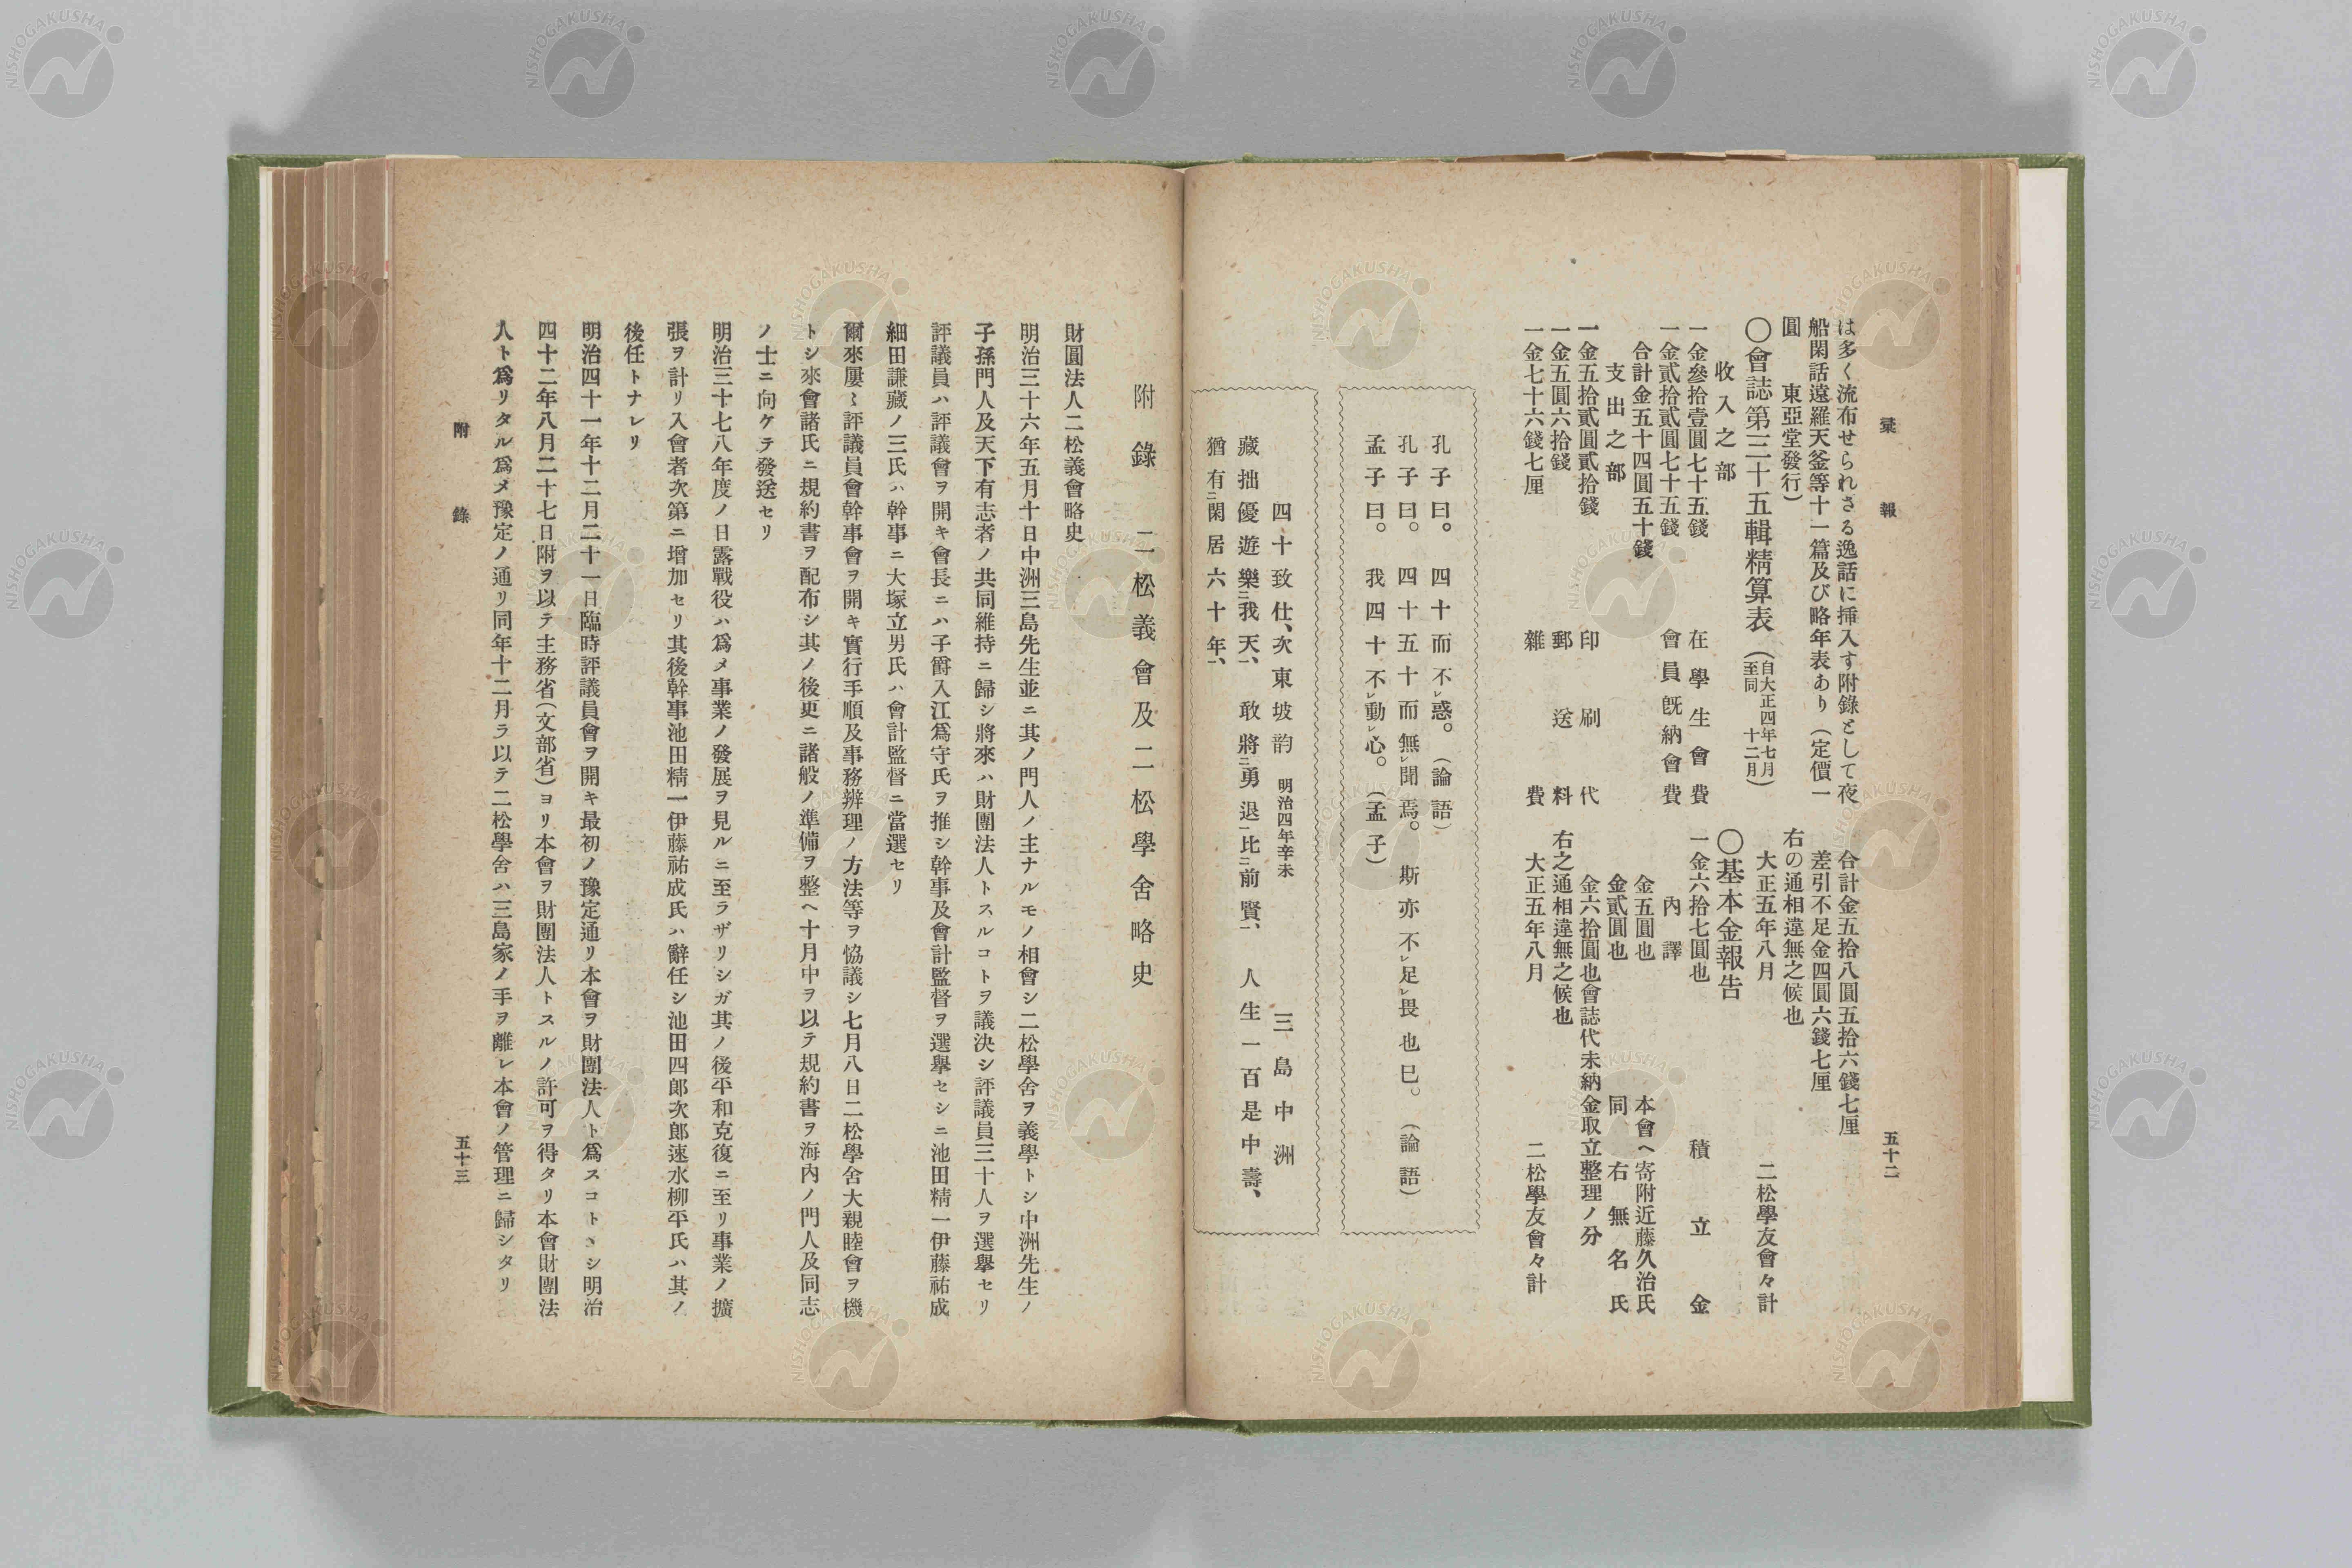 彙報
五十二
は多く流布せられさる逸話に挿入す附錄として夜
船閑話遠羅天釜等十一篇及び略年表あり（定價一
圓　東亞堂發行）
〇會誌第三十五輯精算表（自大正四年七月至同十二月）
收入之部
一金參拾壹圓七十五錢　在學生會費
一金貳拾貳圓七十五錢　會員既納會費
合計金五十四圓五十錢
支出之部
一金五拾貳圓貳拾錢　印刷代
一金五圓六拾錢　郵送料
一金七十六錢七厘　雜費
合計金五拾八圓五拾六錢七厘
差引不足金四圓六錢七厘
右の通相違無之候也
大正五年八月　二松學友會々計
〇基本金報告
一金六拾七圓也　積立金
內譯
金五圓也　本會へ寄附近藤久治氏
金貳圓也　同右無名氏
金六拾圓也會誌代未納金取立整理ノ分
右之通相違無之候也
大正五年八月　二松學友會々計
孔子曰。四十而不レ惑。（論語）
孔子曰。四十五十而無レ聞焉。斯亦不レ足レ畏也已。（論語）
孟子曰。我四十不レ動レ心。（孟子）
四十致仕、次東坡韵　明治四年辛未　三島中洲
藏拙優遊樂二我天一、敢將二勇退一比二前賢一、人生一百是中壽、
猶有二閑居六十年一、
附錄　二松義會及二松學舍略史
財團法人二松義會略史
明治三十六年五月十日中洲三島先生並ニ其ノ門人ノ主ナルモノ相會シ二松學舍ヲ義學トシ中洲先生ノ
子孫門人及天下有志者ノ共同維持ニ歸シ將來ハ財團法人トスルコトヲ議決シ評議員三十人ヲ選擧セリ
評議員ハ評議會ヲ開キ會長ニハ子爵入江爲守氏ヲ推シ幹事及會計監督ヲ選擧セシニ池田精一伊藤祐成
細田謙藏ノ三氏ハ幹事ニ大塚立男氏ハ會計監督ニ當選セリ
爾來屢〻評議員會幹事會ヲ開キ實行手順及事務辨理ノ方法等ヲ協議シ七月八日二松學舍大親睦會ヲ機
トシ來會諸氏ニ規約書ヲ配布シ其ノ後更ニ諸般ノ準備ヲ整ヘ十月中ヲ以テ規約書ヲ海內ノ門人及同志
ノ士ニ向ケテ發送セリ
明治三十七八年度ノ日露戰役ハ爲メ事業ノ發展ヲ見ルニ至ラザリシガ其ノ後平和克復ニ至リ事業ノ擴
張ヲ計リ入會者次第ニ增加セリ其後幹事池田精一伊藤祐成氏ハ辭任シ池田四郎次郎速水柳平氏ハ其ノ
後任トナレリ
明治四十一年十二月二十一日臨時評議員會ヲ開キ最初ノ豫定通リ本會ヲ財團法人ト爲スコトヽシ明治
四十二年八月二十七日附ヲ以テ主務省（文部省）ヨリ本會ヲ財團法人トスルノ許可ヲ得タリ本會財團法
人ト爲リタル爲メ豫定ノ通リ同年十二月ヲ以テ二松學舍ハ三島家ノ手ヲ離レ本會ノ管理ニ歸シタリ
附錄
五十三
NISHOGAKUSHA